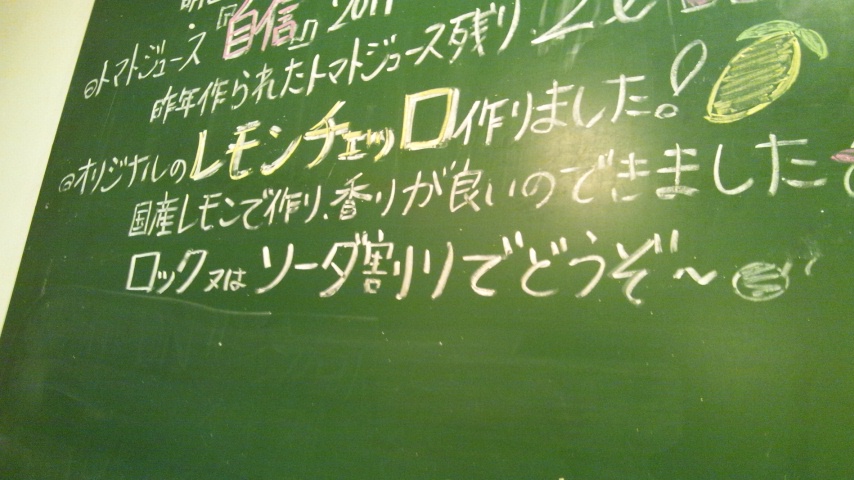 ◎トマトジュース『自信』2011
昨年作られたトマトジュース残り、2ℓ
◎オリジナルのレモンチェッロ作りました!
国産レモンで作り、香りが良いのできました
ロック又はソーダ割りでどうぞ〜